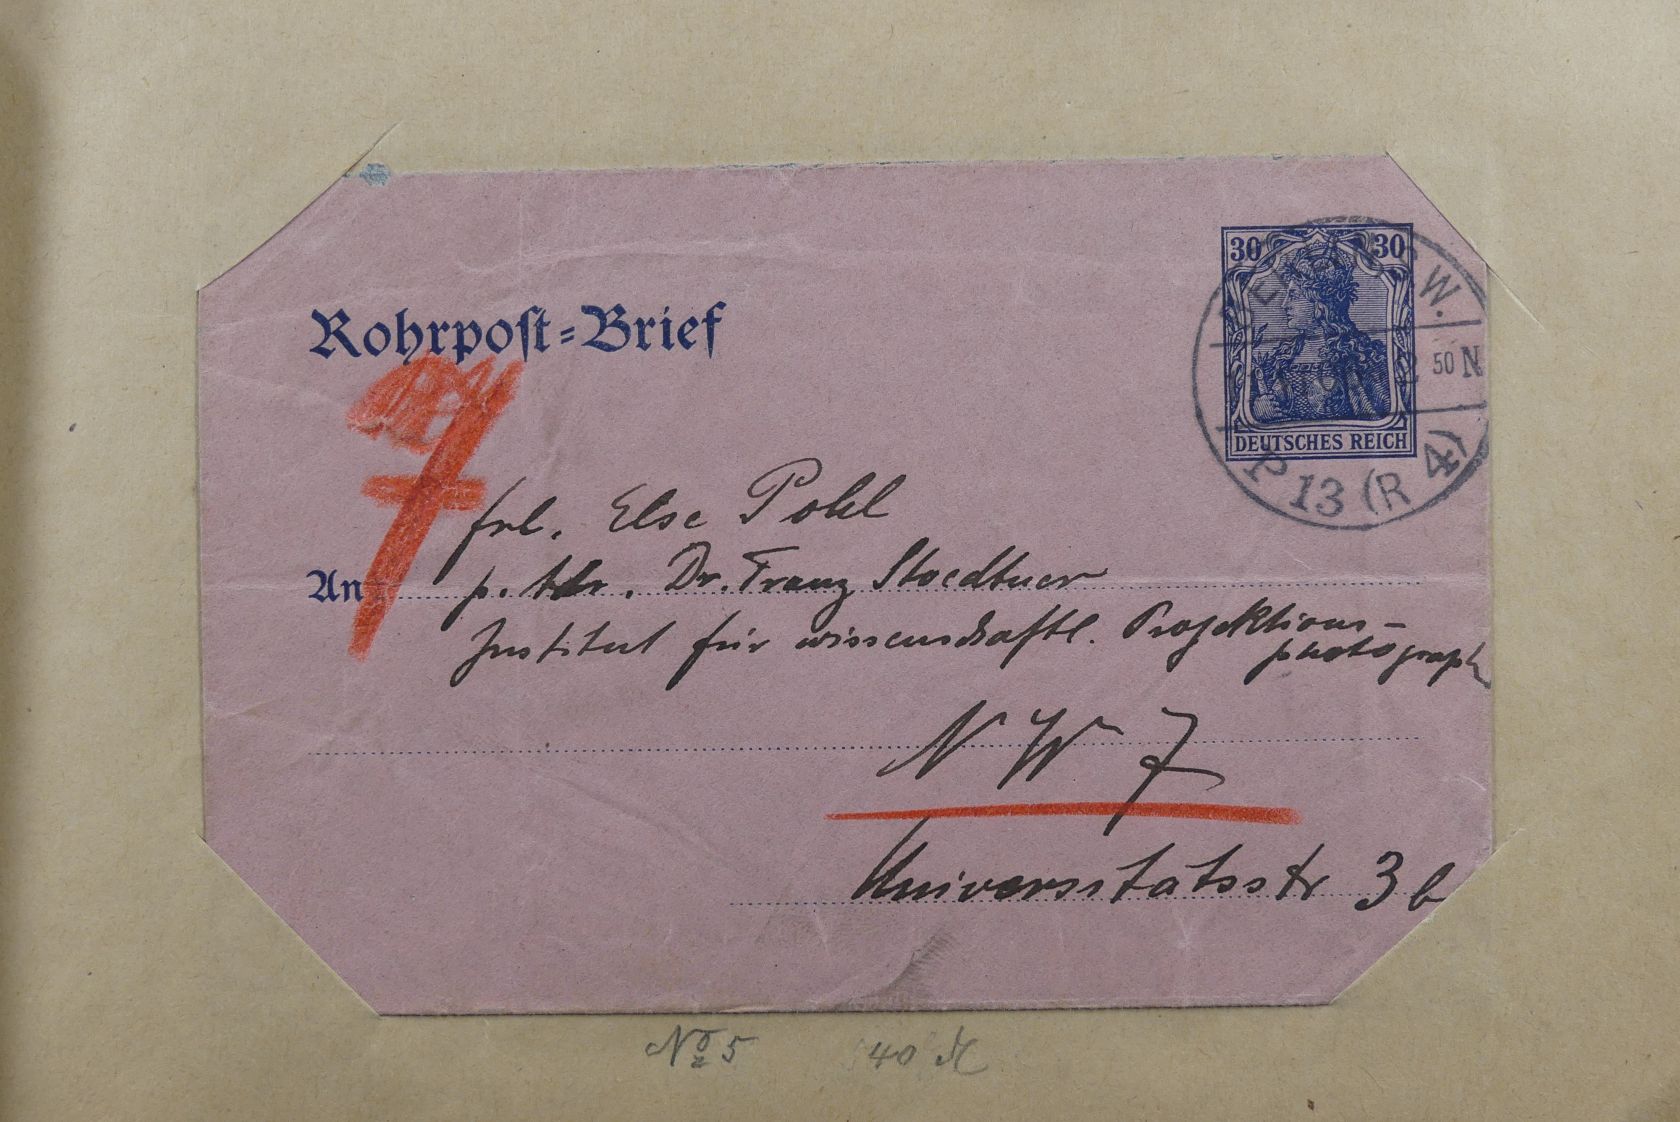 30 30
W.
50 N
DEUTSCHES REICH
P 13 (R 4)
Rohrpost-Brief
7
frl. Else Pohl
An p. Adr. Dr. Franz Stoedtner
Institut für wissenschaftl. Projektions-
photograph
N W 7
Universitätsstr 3b
No 5 40 M